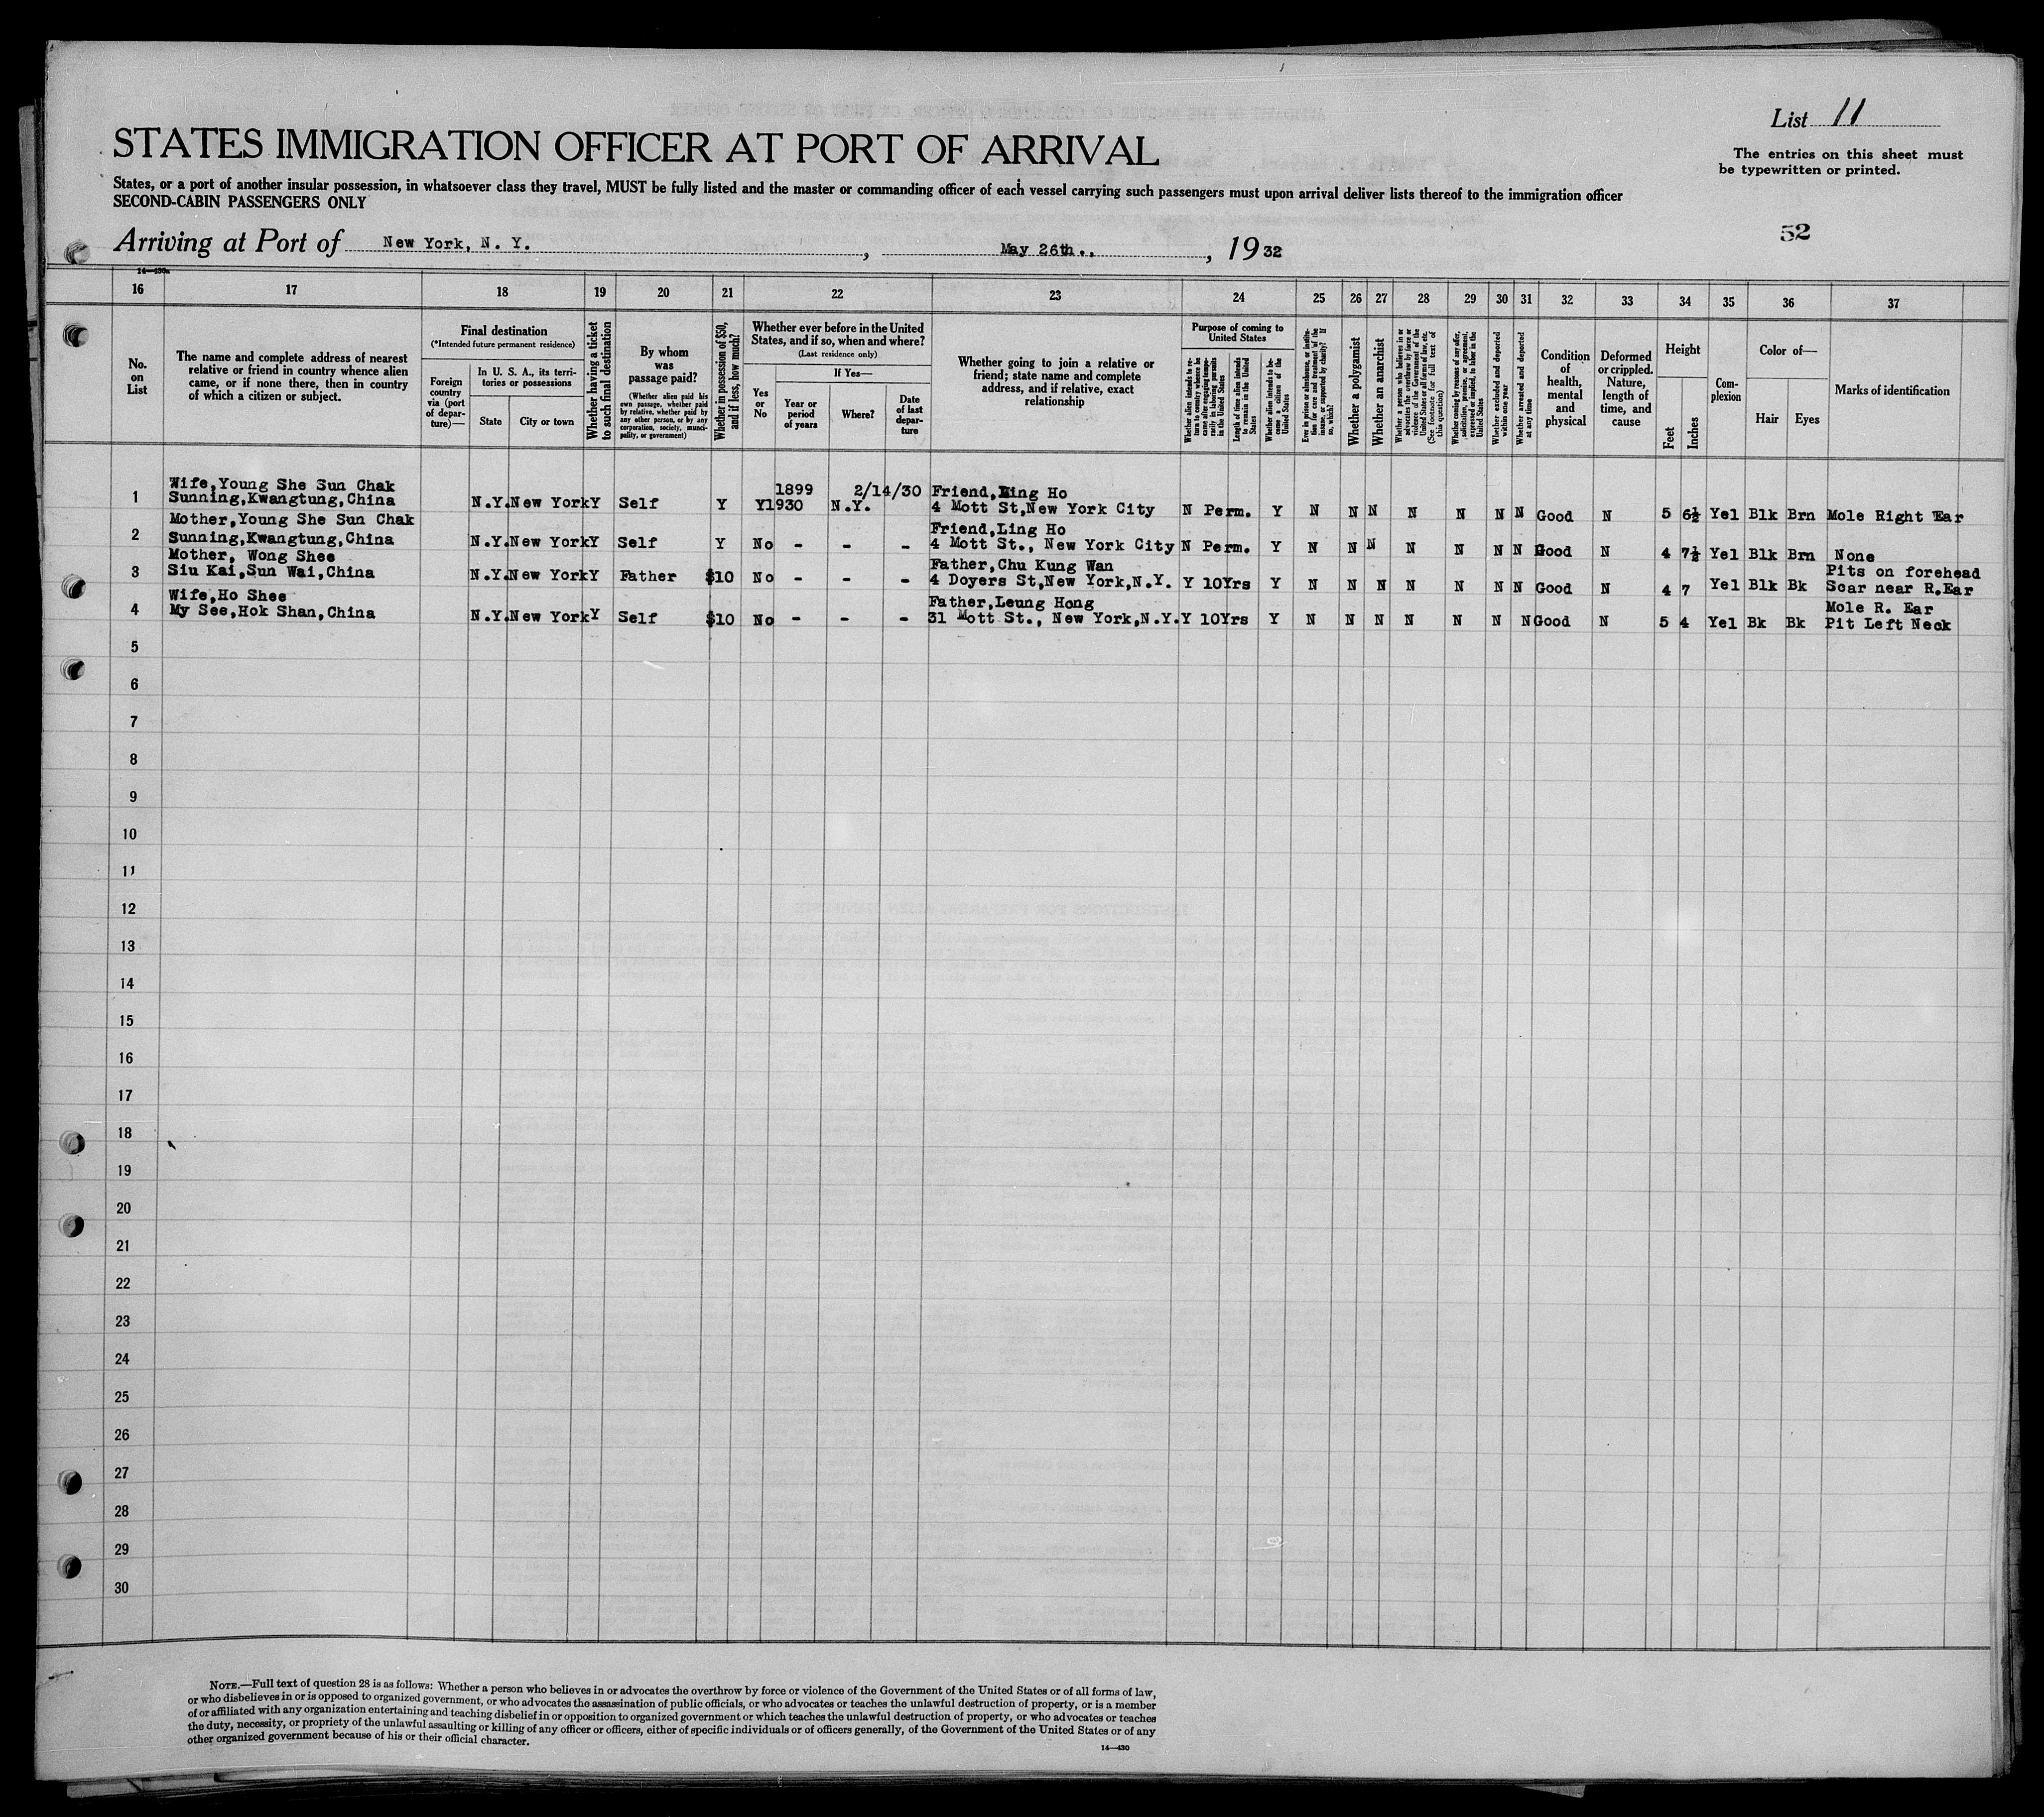 List 11
The entries on this sheet must
be typewritten or printed.
STATES IMMIGRATION OFFICER AT PORT OF ARRIVAL
States, or a port of another insular possession, in whatsoever class they travel, MUST be fully listed and the master or commanding officer of each vessel carrying such passengers must upon arrival deliver lists thereof to the immigration officer
SECOND-CABIN PASSENGERS ONLY
52
Arriving at Port of New York, N. Y. , May 26th., , 1932
14—430a
16 17 18 19 20 21 22 23 24 25 26 27 28 29 30 31 32 33 34 35 36 37
No. on List
The name and complete address of nearest
relative or friend in country whence alien
came, or if none there, then in country
of which a citizen or subject.
Final destination
(*Intended future permanent residence)
Foreign country via (port of departure)—
In U. S. A., its territories or possessions
State
City or town
Whether having a ticket to such final destination
By whom was passage paid?
(Whether alien paid his own passage, whether paid by relative, whether paid by any other person, or by any corporation, society, municipality, or government)
Whether in possession of $50, and if less, how much?
Whether ever before in the United States, and if so, when and where?
(Last residence only)
Yes or No
If Yes—
Year or period of years
Where?
Date of last departure
Whether going to join a relative or
friend; state name and complete
address, and if relative, exact
relationship
Purpose of coming to United States
Whether alien intends to return to country whence he came after engaging temporarily in laboring pursuits in the United States
Length of time alien intends to remain in the United States
Whether alien intends to become a citizen of the United States
Ever in prison or almshouse, or institution for care and treatment of the insane, or supported by charity? If so, which?
Whether a polygamist
Whether an anarchist
Whether a person who believes in or advocates the overthrow by force or violence of the Government of the United States or all forms of law, etc. (See footnote for full text of this question)
Whether coming by reasons of any offer, solicitation, promise, or agreement, expressed or implied, to labor in the United States
Whether excluded and deported within one year
Whether arrested and deported at any time
Condition of health, mental and physical
Deformed or crippled. Nature, length of time, and cause
Height
Feet
Inches
Complexion
Color of—
Hair
Eyes
Marks of identification
1 Wife,Young She Sun Chak
Sunning,Kwangtung,China N.Y. New York Y Self Y Y 1899 1930 N.Y. 2/14/30 Friend,Ling Ho
4 Mott St,New York City N Perm. Y N N N N N N N Good N 5 6½ Yel Blk Brn Mole Right Ear
2 Mother,Young She Sun Chak
Sunning,Kwangtung,China N.Y. New York Y Self Y No - - - Friend,Ling Ho
4 Mott St., New York City N Perm. Y N N N N N N N Good N 4 7½ Yel Blk Brn None
3 Mother, Wong Shee
Siu Kai,Sun Wai,China N.Y. New York Y Father $10 No - - - Father,Chu Kung Wan
4 Doyers St,New York,N.Y. Y 10Yrs Y N N N N N N N Good N 4 7 Yel Blk Bk Pits on forehead
Scar near R.Ear
4 Wife,Ho Shee
My See,Hok Shan,China N.Y. New York Y Self $10 No - - - Father,Leung Hong
31 Mott St., New York,N.Y. Y 10Yrs Y N N N N N N N Good N 5 4 Yel Bk Bk Mole R. Ear
Pit Left Neck
5
6
7
8
9
10
11
12
13
14
15
16
17
18
19
20
21
22
23
24
25
26
27
28
29
30
NOTE.—Full text of question 28 is as follows: Whether a person who believes in or advocates the overthrow by force or violence of the Government of the United States or of all forms of law,
or who disbelieves in or is opposed to organized government, or who advocates the assassination of public officials, or who advocates or teaches the unlawful destruction of property, or is a member
of or affiliated with any organization entertaining and teaching disbelief in or opposition to organized government or which teaches the unlawful destruction of property, or who advocates or teaches
the duty, necessity, or propriety of the unlawful assaulting or killing of any officer or officers, either of specific individuals or of officers generally, of the Government of the United States or of any
other organized government because of his or their official character.
14—430